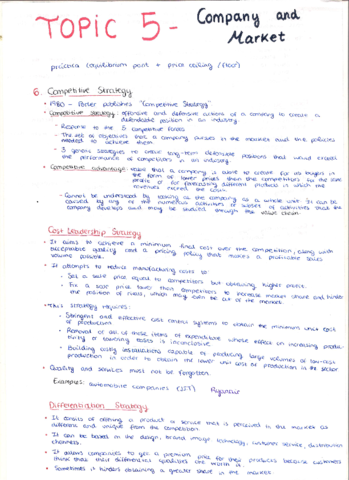 TOPIC 5 - Company and
Market
6. Competitive Strategy
• 1980 - Porter publishes "Competitive Strategy"
• Competitive strategy: offensive and defensive actions of a company to create a
defendable position in an industry.
- Response to the 5 competitive forces
- The set of objectives that a company pursues in the markets and the policies
needed to achieve them.
- 3 generic strategies to create long-term defensible positions that would exceed
the performance of competitors in an industry.
• Competitive advantage: value that a company is able to create for its buyers in
the form of lower prices than the competitors for the same
products in which the
revenues exceed the costs.
- Cannot be understood by looking at the company as a whole unit. It can be
activities that the
company develops and may be studied through the value chain.
Cost Leadership Strategy
• It aims to achieve a minimum final cost over the competition, along with
acceptable quality and a pricing policy that makes a profitable sales
volume possible.
• It attempts to reduce manufacturing costs to:
- Set a sale price equal to competitors but obtaining higher profit.
- Fix a sale price lower than competitors to increase market share and hinder
the position of rivals, which may even be out of the market.
• This strategy requires:
- Stringent and effective cost control systems to obtain the minimum unit cost
of production.
- Removal of all of those items of expenditure whose effect in increasing produc-
tivity or sourcing tasks is inconclusive.
- Building costly installations capable of producing large volumes of low-cost
production in order to obtain the lower unit cost of production in its sector
• Quality and services must not be forgotten.
Example: automobile companies Ryanair
Differentiation Strategy
• It consists of offering a product or service that is perceived in the market as
different and unique from the competition
• It can be based in the design, brand image, technology, customer service, distribution
channels.
• It allows companies to get a premium price for their products because customers
think that their differentials qualities are worth it.
• Sometimes it hinders obtaining a greater share in the market.